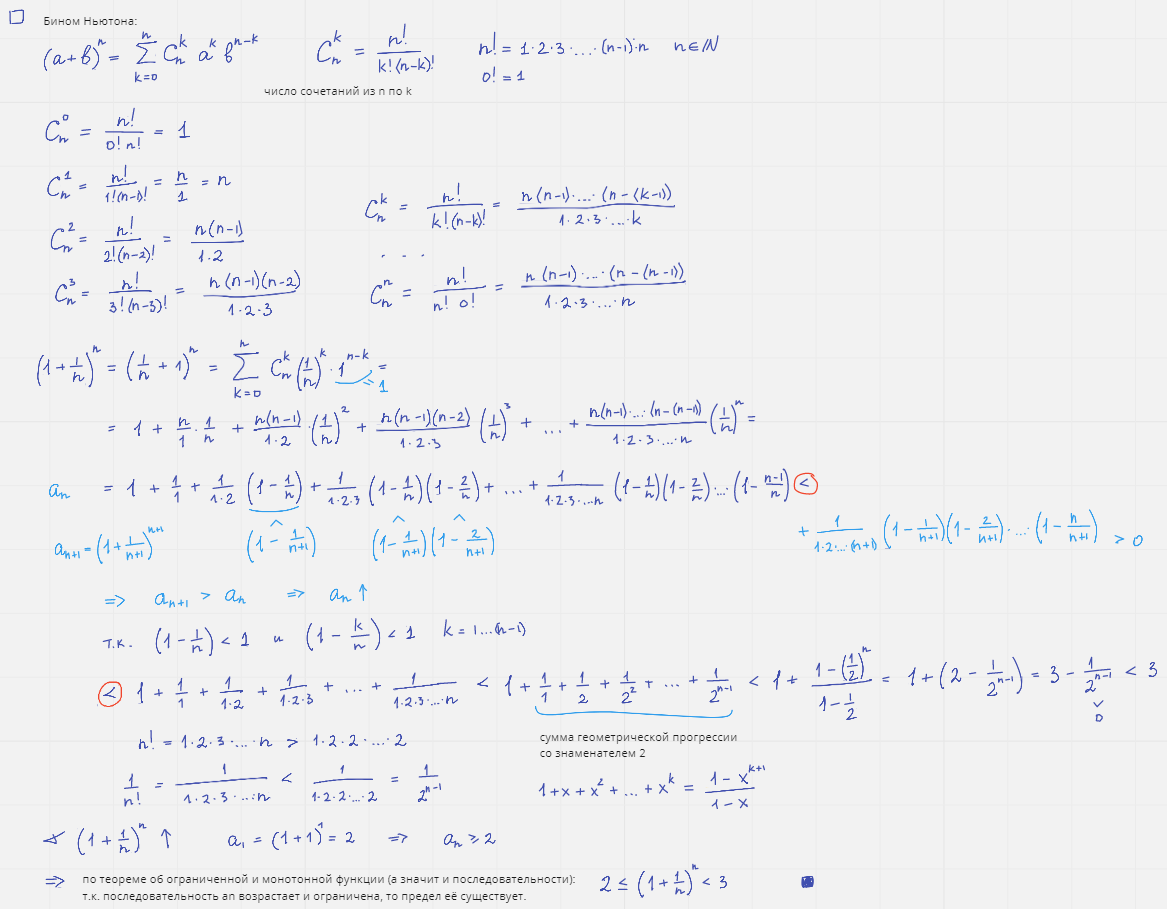 Бином Ньютона:
(a+b)^n = ∑_{k=0}^{n} C_n^k a^k b^{n-k}   C_n^k = n!/(k!(n-k)!)   n! = 1·2·3·...·(n-1)·n   n∈ℕ
0! = 1
число сочетаний из n по k
C_n^0 = n!/(0! n!) = 1
C_n^1 = n!/(1!(n-1)!) = n/1 = n
C_n^k = n!/(k!(n-k)!) = (n(n-1)·...·(n-(k-1)))/(1·2·3·...·k)
C_n^2 = n!/(2!(n-2)!) = n(n-1)/(1·2)
. . .
C_n^3 = n!/(3!(n-3)!) = n(n-1)(n-2)/(1·2·3)
C_n^n = n!/(n! 0!) = (n(n-1)·...·(n-(n-1)))/(1·2·3·...·n)
(1+1/n)^n = (1/n+1)^n = ∑_{k=0}^{n} C_n^k (1/n)^k · 1^{n-k} =
= 1
= 1 + n/1 · 1/n + n(n-1)/(1·2) · (1/n)^2 + n(n-1)(n-2)/(1·2·3) (1/n)^3 + ... + (n(n-1)·...·(n-(n-1)))/(1·2·3·...·n) (1/n)^n =
a_n = 1 + 1/1 + 1/(1·2) (1-1/n) + 1/(1·2·3) (1-1/n)(1-2/n) + ... + 1/(1·2·3·...·n) (1-1/n)(1-2/n)·...·(1-(n-1)/n) <
a_{n+1} = (1+1/(n+1))^{n+1}   (1-1/(n+1))   (1-1/(n+1))(1-2/(n+1))   + 1/(1·2·...·(n+1)) (1-1/(n+1))(1-2/(n+1))·...·(1-n/(n+1)) > 0
⇒ a_{n+1} > a_n ⇒ a_n ↑
т.к. (1-1/n) < 1 и (1-k/n) < 1   k = 1...(n-1)
< 1 + 1/1 + 1/(1·2) + 1/(1·2·3) + ... + 1/(1·2·3·...·n) < 1 + 1/1 + 1/2 + 1/2^2 + ... + 1/2^{n-1} < 1 + (1-(1/2)^n)/(1-1/2) = 1 + (2 - 1/2^{n-1}) = 3 - 1/2^{n-1} < 3
∨
0
n! = 1·2·3·...·n > 1·2·2·...·2
сумма геометрической прогрессии
со знаменателем 2
1/n! = 1/(1·2·3·...·n) < 1/(1·2·2·...·2) = 1/2^{n-1}
1+x+x^2+...+x^k = (1-x^{k+1})/(1-x)
∢ (1+1/n)^n ↑   a_1 = (1+1)^1 = 2 ⇒ a_n ≥ 2
⇒ по теореме об ограниченной и монотонной функции (а значит и последовательности):   2 ≤ (1+1/n)^n < 3
т.к. последовательность an возрастает и ограничена, то предел её существует.